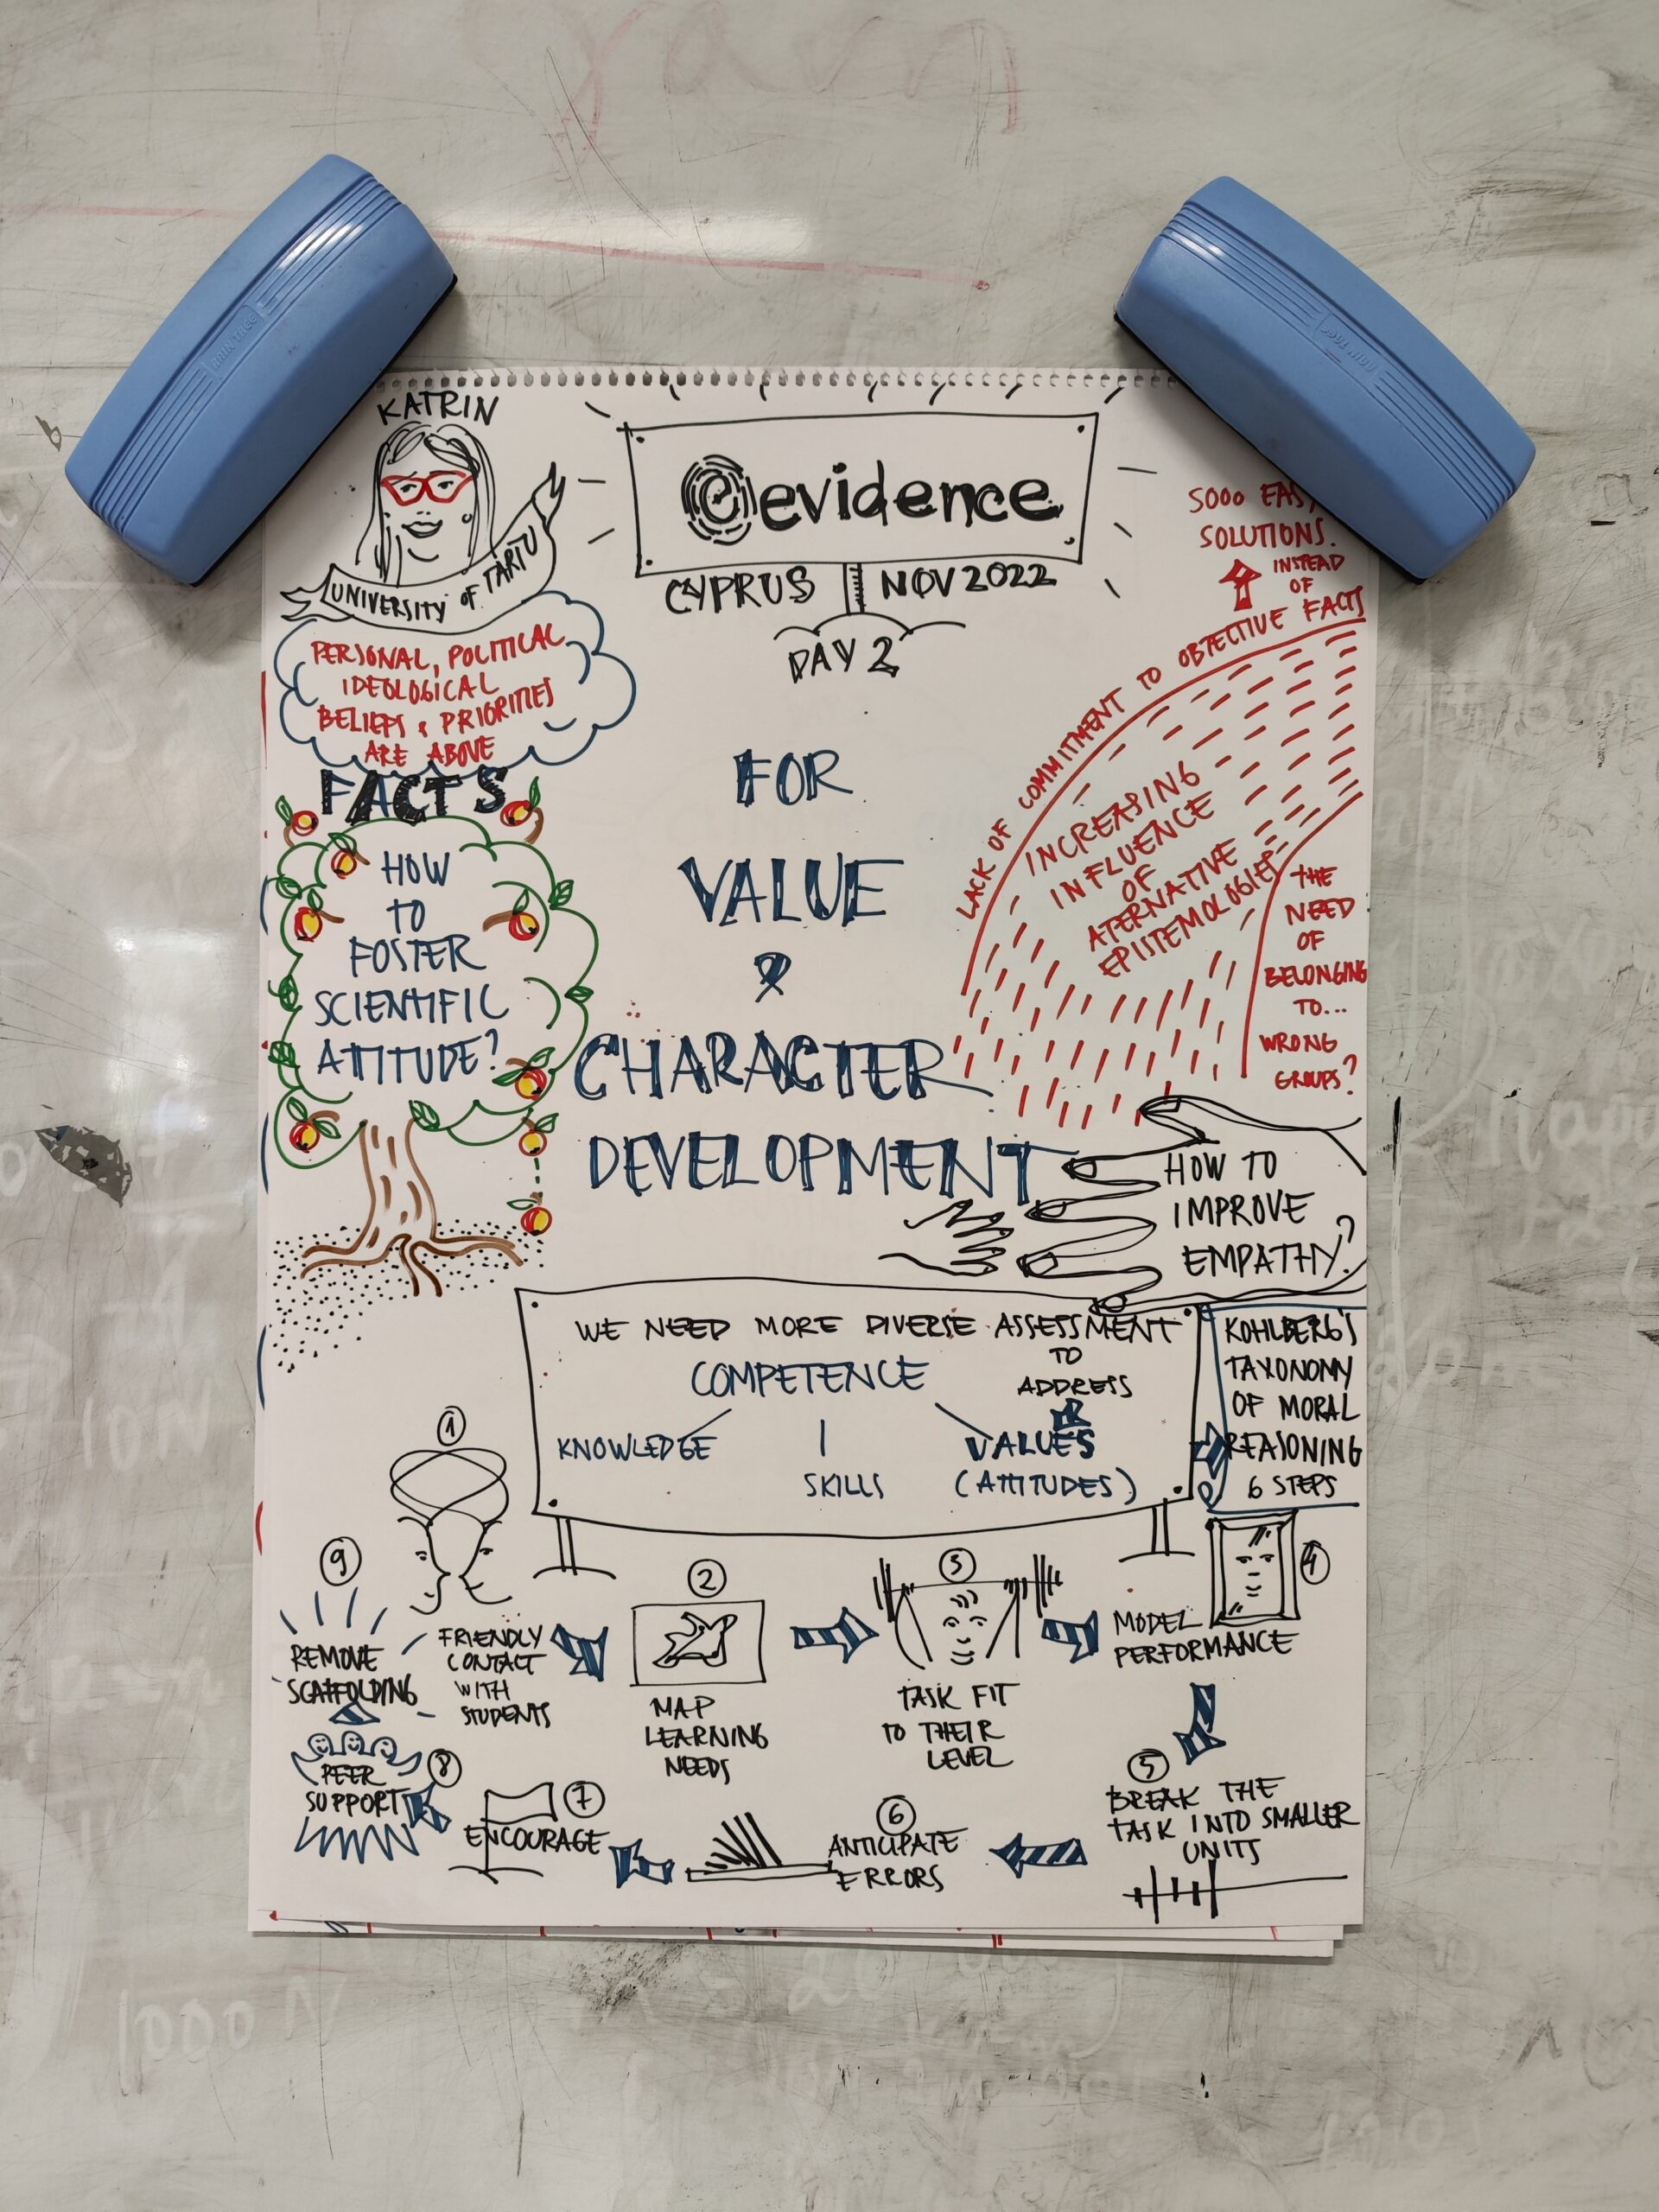 KATRIN
UNIVERSITY OF TARTU
evidence
CYPRUS NOV 2022
DAY 2
PERSONAL, POLITICAL
IDEOLOGICAL
BELIEFS & PRIORITIES
ARE ABOVE
FACTS
HOW
TO
FOSTER
SCIENTIFIC
ATTITUDE?
FOR
VALUE
&
CHARACTER
DEVELOPMENT
SOOO EASY
SOLUTIONS.
INSTEAD
OF
LACK OF COMMITMENT TO OBJECTIVE FACTS
INCREASING
INFLUENCE
OF
ATERNATIVE
EPISTEMOLOGIES
THE
NEED
OF
BELONGING
TO...
WRONG
GROUPS?
HOW TO
IMPROVE
EMPATHY?
WE NEED MORE DIVERSE ASSESSMENT
TO
ADDRESS
COMPETENCE
KNOWLEDGE
SKILLS
VALUES
(ATTITUDES)
KOHLBERG'S
TAXONOMY
OF MORAL
REASONING
6 STEPS
1
FRIENDLY
CONTACT
WITH
STUDENTS
2
MAP
LEARNING
NEEDS
3
TASK FIT
TO THEIR
LEVEL
4
MODEL
PERFORMANCE
5
BREAK THE
TASK INTO SMALLER
UNITS
6
ANTICIPATE
ERRORS
7
ENCOURAGE
8
PEER
SUPPORT
9
REMOVE
SCAFFOLDING
1000 N